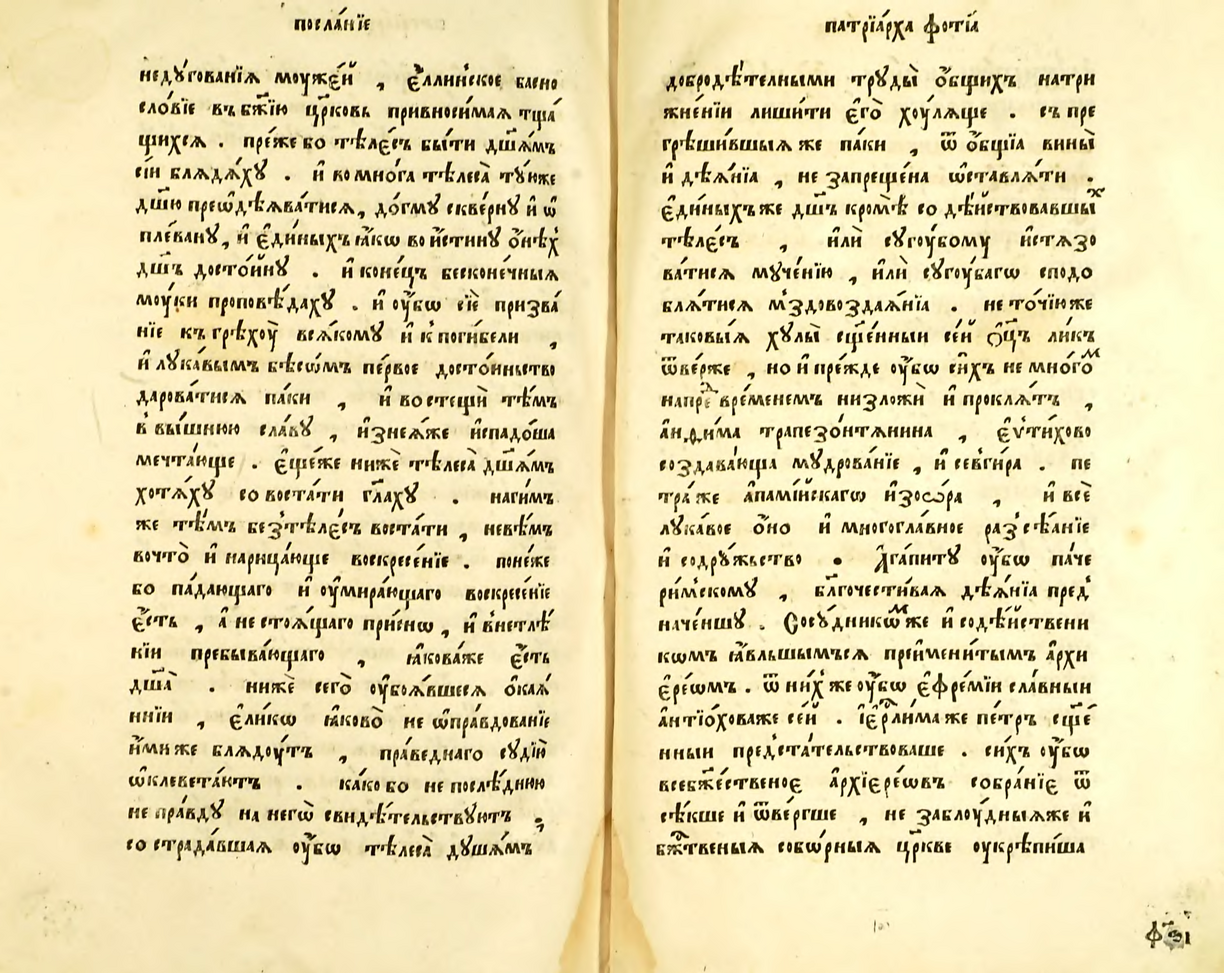 посла́нїе
недꙋгованїѧ моужє́й , є҆́ллиньское басно
сло́вїе въ бж҃їю цр҃ковь привносимаѧ тща́
щихсѧ . пре́же бо тѣле́съ бы́ти дш҃ѧ́мъ
сїи блѧдѧ́хꙋ . и҆ во мнѡ́га тѣлеса̀ тꙋ́юже
дш҃ю преѡдѣѧва́тисѧ, до́гмꙋ скве́рнꙋ и҆ ѡ҆
пле́ванꙋ, и҆ є҆ди́ныхъ ꙗ҆́кѡ во и҆́стинꙋ ѻ҆нѣ́х
дш҃ъ досто́йнꙋ . и҆ коне́цъ бесконе́чныѧ
моу́ки проповѣ́дахꙋ . и҆ оу҆́бѡ сїѐ призва́
нїе къ грѣхоу̀ всѧ́комꙋ и҆ к̾ поги́бели ,
и҆ лꙋка́вымъ бѣсѡ́мъ пе́рвое досто́иньство
дарова́тисѧ па́ки , и҆ востещѝ тѣ́мъ
в вы́шнюю сла́вꙋ , и҆знеѧ́же и҆спадо́ша
мечта́юще . є҆ще́же нижѐ тѣлеса̀ дш҃ѧ́мъ
хотѧ́хꙋ совоста́ти гл҃ахꙋ . наги́мъ
же тѣ́мъ без̾тѣле́съ воста́ти , невѣ́мъ
вочто̀ и҆ нарица́юще воскресе́нїе . поне́же
бо па́дающаго и҆ оу҆мира́ющаго воскресе́нїе
є҆́сть , а҆ не стоѧ́щаго при́снѡ , и҆ в̾нетлѣ́
нїи пребыва́ющаго , ꙗ҆кова́же є҆́сть
дш҃а̀ . нижѐ сегѡ̀ оу҆боѧ́вшесѧ ѻ҆каѧ́
ннїи , є҆ли́кѡ ꙗ҆ково̀ не ѡ҆правдованїе
и҆́ми же блѧдоу́тъ , пра́веднаго сꙋдїю̀
ѡ҆клевета́ютъ . ка́ко бо не послѣ́днюю
не пра́вдꙋ на негѡ̀ свидѣ́тельствꙋютъ ;
со страда́вшаѧ оу҆́бѡ тѣлеса̀ дꙋшѧ́мъ
патрїа́рха фотїѧ
добродѣ́телными трꙋды̀ ѻ҆́бщихъ натри
жне́нїи лиши́ти є҆го̀ хоу́лѧще . съ пре
грѣши́вшыѧ же па́ки , ѿ ѻ҆́бщїа вины̀
и҆ дѣѧ́нїа , не запреще́на ѡ҆ставлѧ́ти .
є҆ди́ныхъ же дш҃ъ кромѣ̀ со дѣ́йствовавшых
тѣле́съ , и҆лѝ сꙋгоу́бомꙋ и҆стѧзо
ва́тисѧ мꙋче́нїю , и҆лѝ сꙋгоу́багѡ сподо
блѧ́тисѧ м̾здовоздаѧ́нїа . не то́чїю же
таковы́ѧ хꙋлы̀ сщ҃е́нныи се́й ѻ҆ц҃ъ ли́къ
ѿве́рже , но и҆ пре́жде оу҆́бѡ си́хъ не мно́гом
напред вре́менемъ низложи́ и҆ проклѧ́тъ ,
а҆нѳи́ма трапезо́нтѧнина , є҆ѵти́хово
создава́юща мꙋдрова́нїе , и҆ севги́ра . пе
тра́ же а҆памі́йскагѡ и҆ зоѡ́ра , и҆ всѐ
лꙋка́вое ѻ҆́но и҆ многогла́вное раз̾сѣ́анїе
и҆ содрꙋ́жьство . А҆гапи́тꙋ оу҆́бѡ па́че
ри́мьскомꙋ , бл҃гочести́ваѧ дѣѧ́нїа пред̾
наче́ншꙋ . Сосꙋ́дникѡм же и҆ содѣ́йствени
кѡмъ ꙗ҆́вльшымъсѧ преи҆мени́тымъ а҆рхи
є҆ре́ѡмъ . ѿ ни́х же оу҆́бѡ є҆фре́мїи сла́вныи
а҆нтїо́ховаже се́й . і҆ер҃ли́ма же пе́тръ сще҃́
нныи пред̾ста́тельствоваше . си́хъ оу҆́бѡ
всебж҃е́ственоє а҆рхїєре́ѡвъ собра́нїє ѿ
сѣ́кше и҆ ѿве́ргше , не заблоу́дныѧже и҆
бж҃твеныѧ собѡ́рныѧ цр҃кве оукрѣпи́ша